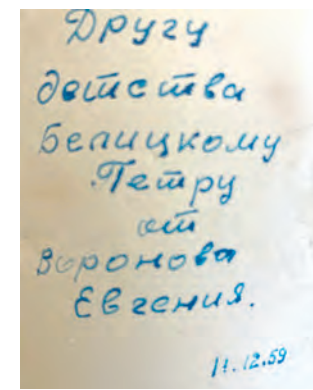 Другу
детства
Белицкому
Петру
от
Воронова
Евгения.
11.12.59